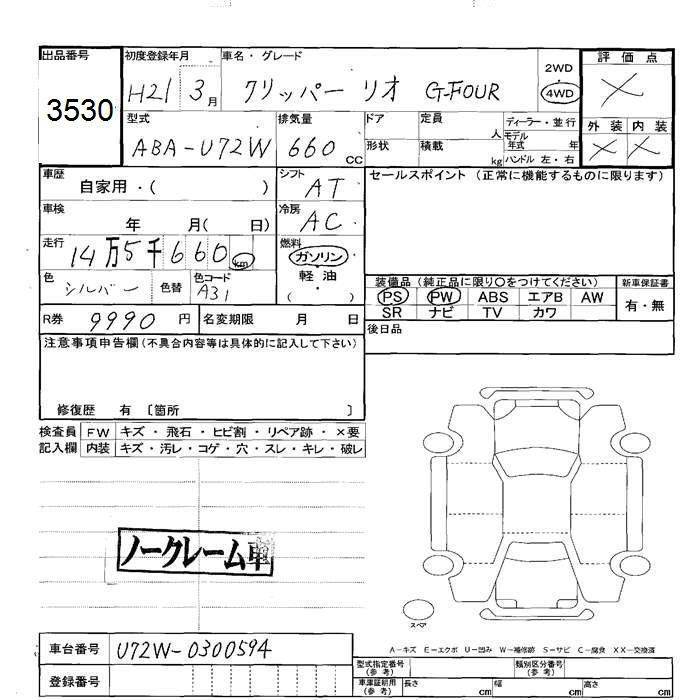 出品番号 初度登録年月 車名・グレード 評価点
3530 H21 3月 クリッパー リオ G-FOUR 2WD 4WD ×
型式 排気量 ドア 定員 人 ディーラー・並行 外装 内装
ABA-U72W 660cc 形状 積載 kg モデル年式 年 ハンドル 左・右 × ×
車歴 自家用・( ) シフト AT セールスポイント (正常に機能するものに限ります)
車検 年 月( 日) 冷房 AC
走行 14万5千660km 燃料 ガソリン・軽油・( )
色 シルバー 色替 色コード A31
装備品 (純正品に限り○をつけてください) 新車保証書
PS PW ABS エアB AW 有・無
SR ナビ TV カワ
R券 9990円 名変期限 月 日 後日品
注意事項申告欄 (不具合内容等は具体的に記入して下さい)
修復歴 有 〔箇所 〕
検査員 FW キズ・飛石・ヒビ割・リペア跡・×要
記入欄 内装 キズ・汚レ・コゲ・穴・スレ・キレ・破レ
ノークレーム車
スペア
A-キズ E-エクボ U-凹み W-補修跡 S-サビ C-腐食 XX-交換済
車台番号 U72W-0300594
型式指定番号 (参考) 類別区分番号 (参考)
登録番号 車庫証明用 (参考) 長さ cm 幅 cm 高さ cm